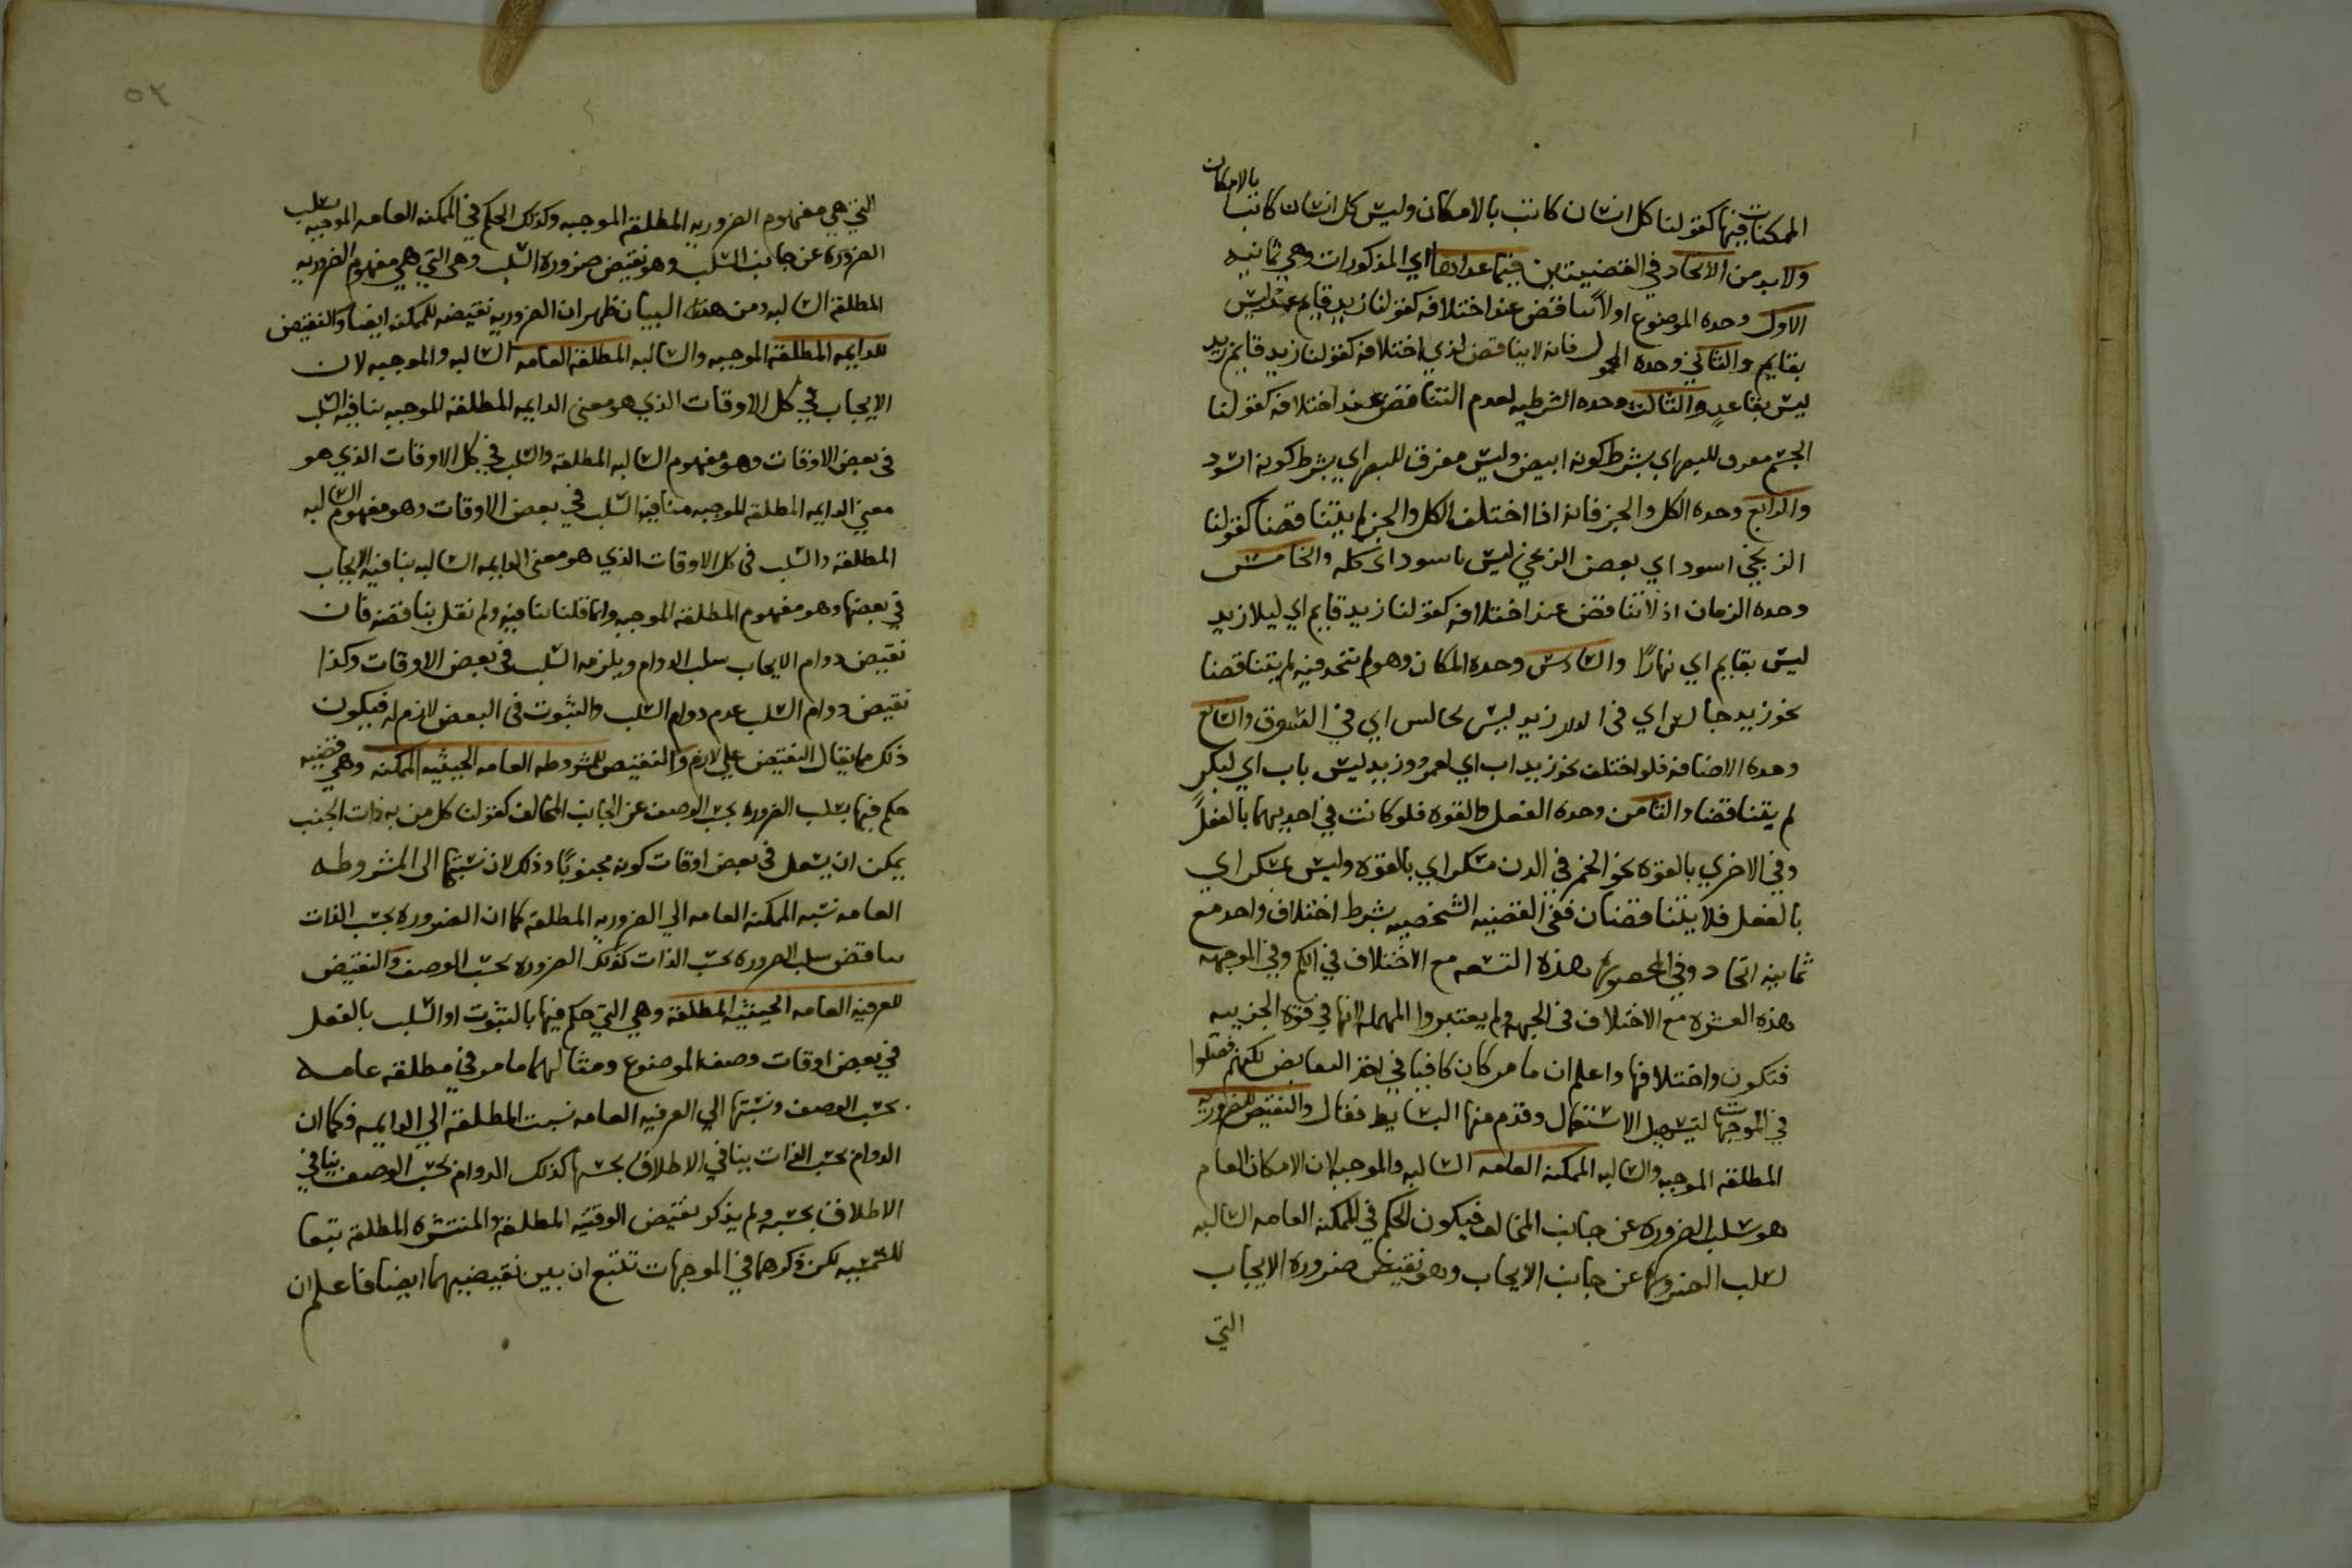 الممكنات فيها كقولنا كل انسان كاتب بالامكان وليس كل انسان كاتبا بالامكان
ولابد من الاتحاد في القضيتين فيما عداها اي المذكورات وهي ثمانيه
الاول وحده الموضوع اولا تناقض عند اختلافه كقولنا زيد قايم عمرو ليس
بقايم والثاني وحده المحمول فانه لا يتناقض لدي اختلافه كقولنا زيد قايم زيد
ليس بقاعد والثالث وحده الشرطيه لعدم التناقض عند اختلافه كقولنا
الجسم مفرق للبصر اي بشرط كونه ابيض وليس مفرق للبصر اي بشرط كونه اسود
والرابع وحده الكل والجز فانه اذا اختلف الكل والجز لم يتناقضا كقولنا
الزنجي اسود اي بعض الزنجي ليس باسود اى كله والخامس
وحده الزمان اذ لا تناقض عند اختلافه كقولنا زيد قايم اي ليلا زيد
ليس بقايم اي نهارًا والسادس وحده المكان وهو لم يتحد فيه لم يتناقضا
نحو زيد جالس اي فى الدار زيد ليس بجالس اي في السوق والسابع
وحده الاضافه فلو اختلف نحو زيد اب اي لعمرو وزيد ليس باب اي لبكر
لم يتناقضا والثامن وحده الفعل والقوه فلو كانت في احديهما بالفعل
وفي الاخري بالقوه نحو الخمر في الدن مسكر اي بالقوه وليس بمسكر اي
بالفعل فلا يتناقضان ففى القضيه الشخصيه بشرط اختلاف واحد مع
ثمانيه اتحاد وفي المحصوره هذه التسعه مع الاختلاف في الكم وفي الموجهه
هذه العشره مع الاختلاف فى الجهه ولم يعتبروا المهمله لانها في قوه الجزييه
فتكون واختلافها واعلم ان ما مر كان كافيا في اخذ النقايض لكنهم فصلوا
في الموجهات لتسهيل الاستعمال وقدم منها البسايط فقال والنقيض للضروريه
المطلقه الموجبه والسالبه الممكنه العامه السالبه والموجبه لان الامكان العام
هو سلب الضروره عن جانب المخالف فيكون الحكم في الممكنه العامه السالبه
لسلب الضروره عن جانب الايجاب وهو نقيض ضروره الايجاب
التي
٥٢
التي هي مفهوم الضروريه المطلقه الموجبه وكذلك الحكم في الممكنه العامه الموجبه سلب
الضروره عن جانب السلب وهو نقيض ضروره السلب وهى التي هي مفهوم الضروريه
المطلقه السالبه ومن هذا البيان ظهر ان الضروريه نقيضه للممكنه ايضا والنقيض
للدايمه المطلقه الموجبه والسالبه المطلقه العامه السالبه والموجبه لان
الايجاب في كل الاوقات الذي هو معنى الدايمه المطلقه الموجبه ينافيه السلب
فى بعض الاوقات وهو مفهوم السالبه المطلقه والسلب في كل الاوقات الذي هو
معني الدايمه المطلقه الموجبه منافيه السلب في بعض الاوقات وهو مفهوم السالبه
المطلقه والسلب فى كل الاوقات الذي هو معنى الدايمه السالبه ينافيه الايجاب
في بعضها وهو مفهوم المطلقه الموجبه وانما قلنا ينافيه ولم نقل يناقضه فان
نقيض دوام الايجاب سلب الدوام ويلزمه السلب فى بعض الاوقات وكذا
نقيض دوام السلب عدم دوام السلب والثبوت فى البعض لازم له فيكون
ذلك مما يقال النقيض علي لازمه والنقيض للمشروطه العامه الحينيه الممكنه وهي قضيه
حكم فيها بسلب الضروره بحسب الوصف عن الجانب المخالف كقولنا كل من به ذات الجنب
يمكن ان يسعل فى بعض اوقات كونه مجنوبًا وذلك لان نسبتها الى المشروطه
العامه نسبه الممكنه العامه الي الضروريه المطلقه كما ان الضروره بحسب الذات
يناقض سلب الضروره بحسب الذات كذلك الضروره بحسب الوصف والنقيض
للعرفيه العامه الحينيه المطلقه وهي التي حكم فيها بالثبوت او السلب بالفعل
في بعض اوقات وصف الموضوع ومثالهما ما مر في مطلقه عامه
بحسب الوصف ونسبتها الي العرفيه العامه نسبت المطلقه الي الدايمه فكما ان
الدوام بحسب الذات ينافي الاطلاق بحسبها كذلك الدوام بحسب الوصف ينافي
الاطلاق بحسبه ولم يذكر نقيض الوقتيه المطلقه والمنتشره المطلقه تبعا
للشمسيه لكن ذكرهما في الموجهات تتبع ان يبين نقيضيهما ايضا فاعلم ان